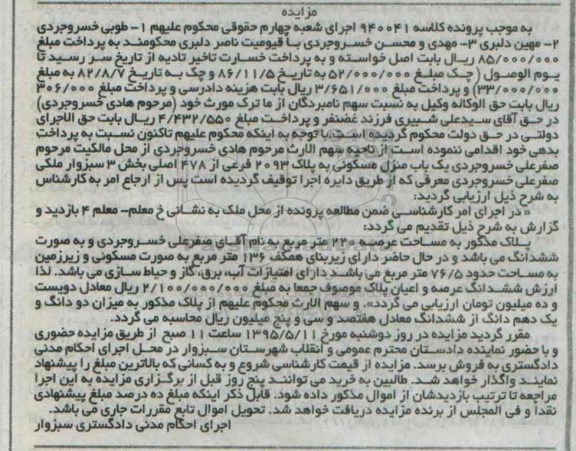 مزایده
به موجب پرونده کلاسه ۹۴۰۰۴۱ اجرای شعبه چهارم حقوقی محکوم علیهم ۱- طوبی خسروجردی
۲- مهین دلبری ۳- مهدی و محسن خسروجردی با قیومیت ناصر دلبری محکومند به پرداخت مبلغ
۸۵/۰۰۰/۰۰۰ ریال بابت اصل خواسته و به پرداخت خسارت تاخیر تادیه از تاریخ سر رسید تا
یوم الوصول ( چک مبلغ ۵۲/۰۰۰/۰۰۰ به تاریخ ۸۶/۱۱/۵ و چک به تاریخ ۸۲/۸/۷ به مبلغ
۳۳/۰۰۰/۰۰۰) و پرداخت مبلغ ۳/۶۵۱/۰۰۰ ریال بابت هزینه دادرسی و پرداخت مبلغ ۳۰۶/۰۰۰
ریال بابت حق الوکاله وکیل به نسبت سهم نامبردگان از ما ترک مورث خود (مرحوم هادی خسروجردی)
در حق آقای سیدعلی شبیری فرزند غضنفر و پرداخت مبلغ ۴/۴۳۲/۵۵۰ ریال بابت حق الاجرای
دولتی در حق دولت محکوم گردیده است. با توجه به اینکه محکوم علیهم تاکنون نسبت به پرداخت
بدهی خود اقدامی ننموده است از ناحیه سهم الارث مرحوم هادی خسروجردی از محل مالکیت مرحوم
صفرعلی خسروجردی یک باب منزل مسکونی به پلاک ۲۰۹۳ فرعی از ۴۷۸ اصلی بخش ۳ سبزوار ملکی
صفرعلی خسروجردی معرفی که از طریق دایره اجرا توقیف گردیده است پس از ارجاع امر به کارشناس
به شرح ذیل ارزیابی گردید:
« در اجرای امر کارشناسی ضمن مطالعه پرونده از محل ملک به نشانی خ معلم- معلم ۴ بازدید و
گزارش به شرح ذیل تقدیم می گردد:
پلاک مذکور به مساحت عرصه ۲۲۰ متر مربع به نام آقای صفرعلی خسروجردی و به صورت
ششدانگ می باشد و در حال حاضر دارای زیربنای همکف ۱۳۶ متر مربع به صورت مسکونی و زیرزمین
به مساحت حدود ۷۶/۵ متر مربع می باشد دارای امتیازات آب، برق، گاز و حیاط سازی می باشد. لذا
ارزش ششدانگ عرصه و اعیان پلاک موصوف جمعا به مبلغ ۲/۱۰۰/۰۰۰/۰۰۰ ریال معادل دویست
و ده میلیون تومان ارزیابی می گردد». و سهم الارث محکوم علیهم از پلاک مذکور به میزان دو دانگ و
یک دهم دانگ از ششدانگ معادل هفتصد و سی و پنج میلیون ریال محاسبه می گردد.
مقرر گردید مزایده در روز دوشنبه مورخ ۱۳۹۵/۵/۱۱ ساعت ۱۱ صبح از طریق مزایده حضوری
و با حضور نماینده دادستان محترم عمومی و انقلاب شهرستان سبزوار در محل اجرای احکام مدنی
دادگستری به فروش برسد. مزایده از قیمت کارشناسی شروع و به کسانی که بالاترین مبلغ را پیشنهاد
نمایند واگذار خواهد شد. طالبین به خرید می توانند پنج روز قبل از برگزاری مزایده به این اجرا
مراجعه تا ترتیب بازدیدشان از اموال مذکور داده شود. قابل ذکر اینکه مبلغ ده درصد مبلغ پیشنهادی
نقدا و فی المجلس از برنده مزایده دریافت خواهد شد. تحویل اموال تابع مقررات جاری می باشد.
اجرای احکام مدنی دادگستری سبزوار